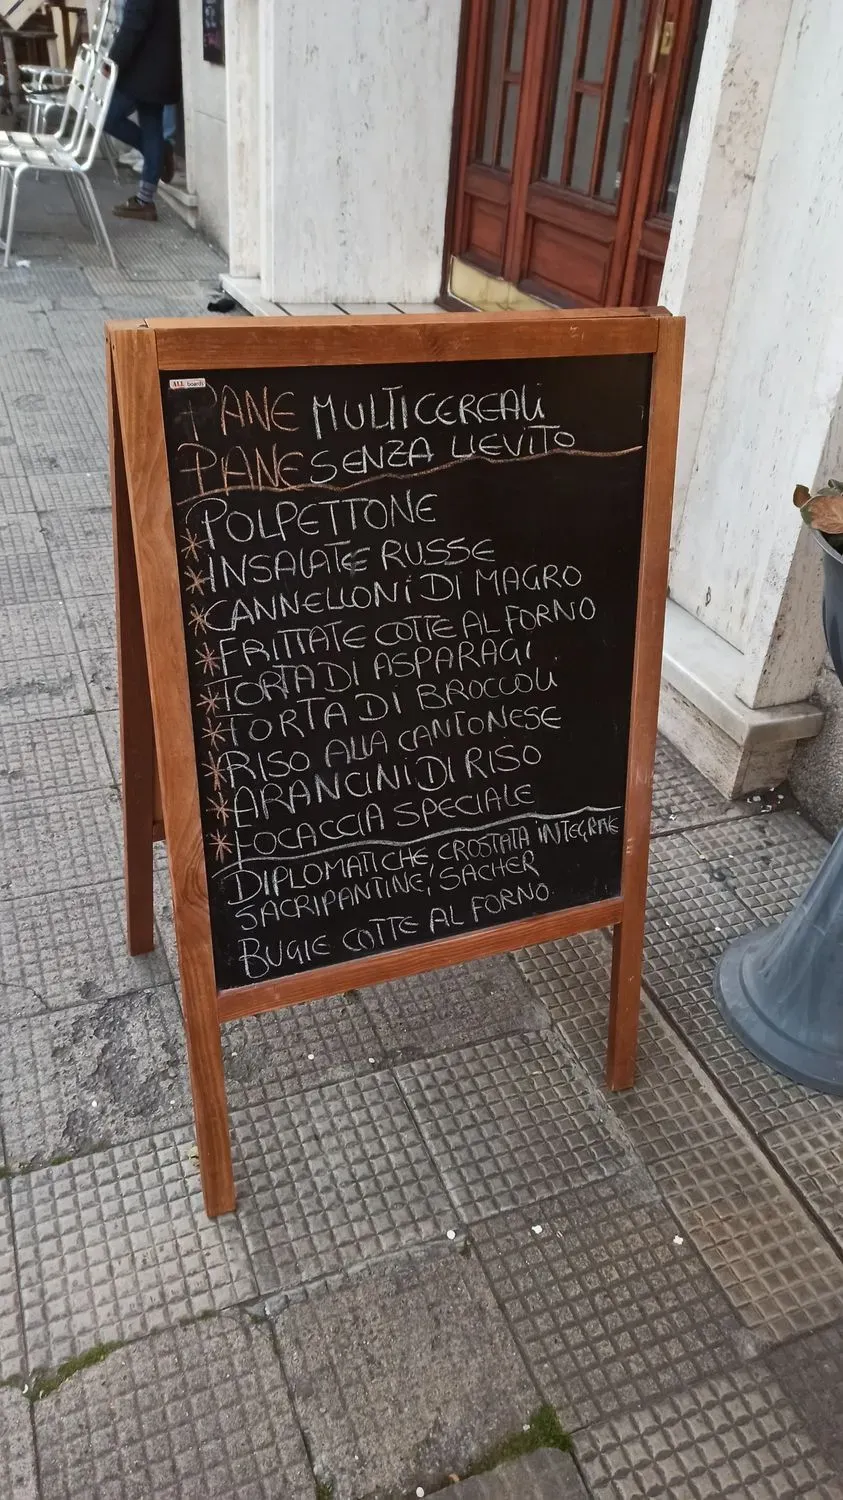 ALL boards
PANE MULTICEREALi
PANE SENZA LIEVITO
* POLPETTONE
* INSALATE RUSSE
* CANNELLONi Di MAGRO
* FRITTATE COTTE AL FORNO
* TORTA Di ASPARAGi
* TORTA Di BROCCOLi
* RISO ALLA CANTONESE
* ARANCiNi Di RISO
* FOCACCIA SPECIALE
DIPLOMATICHE, CROSTATA iNTEGRALE
SACRIPANTINE, SACHER
BUGIE COTTE AL FORNO